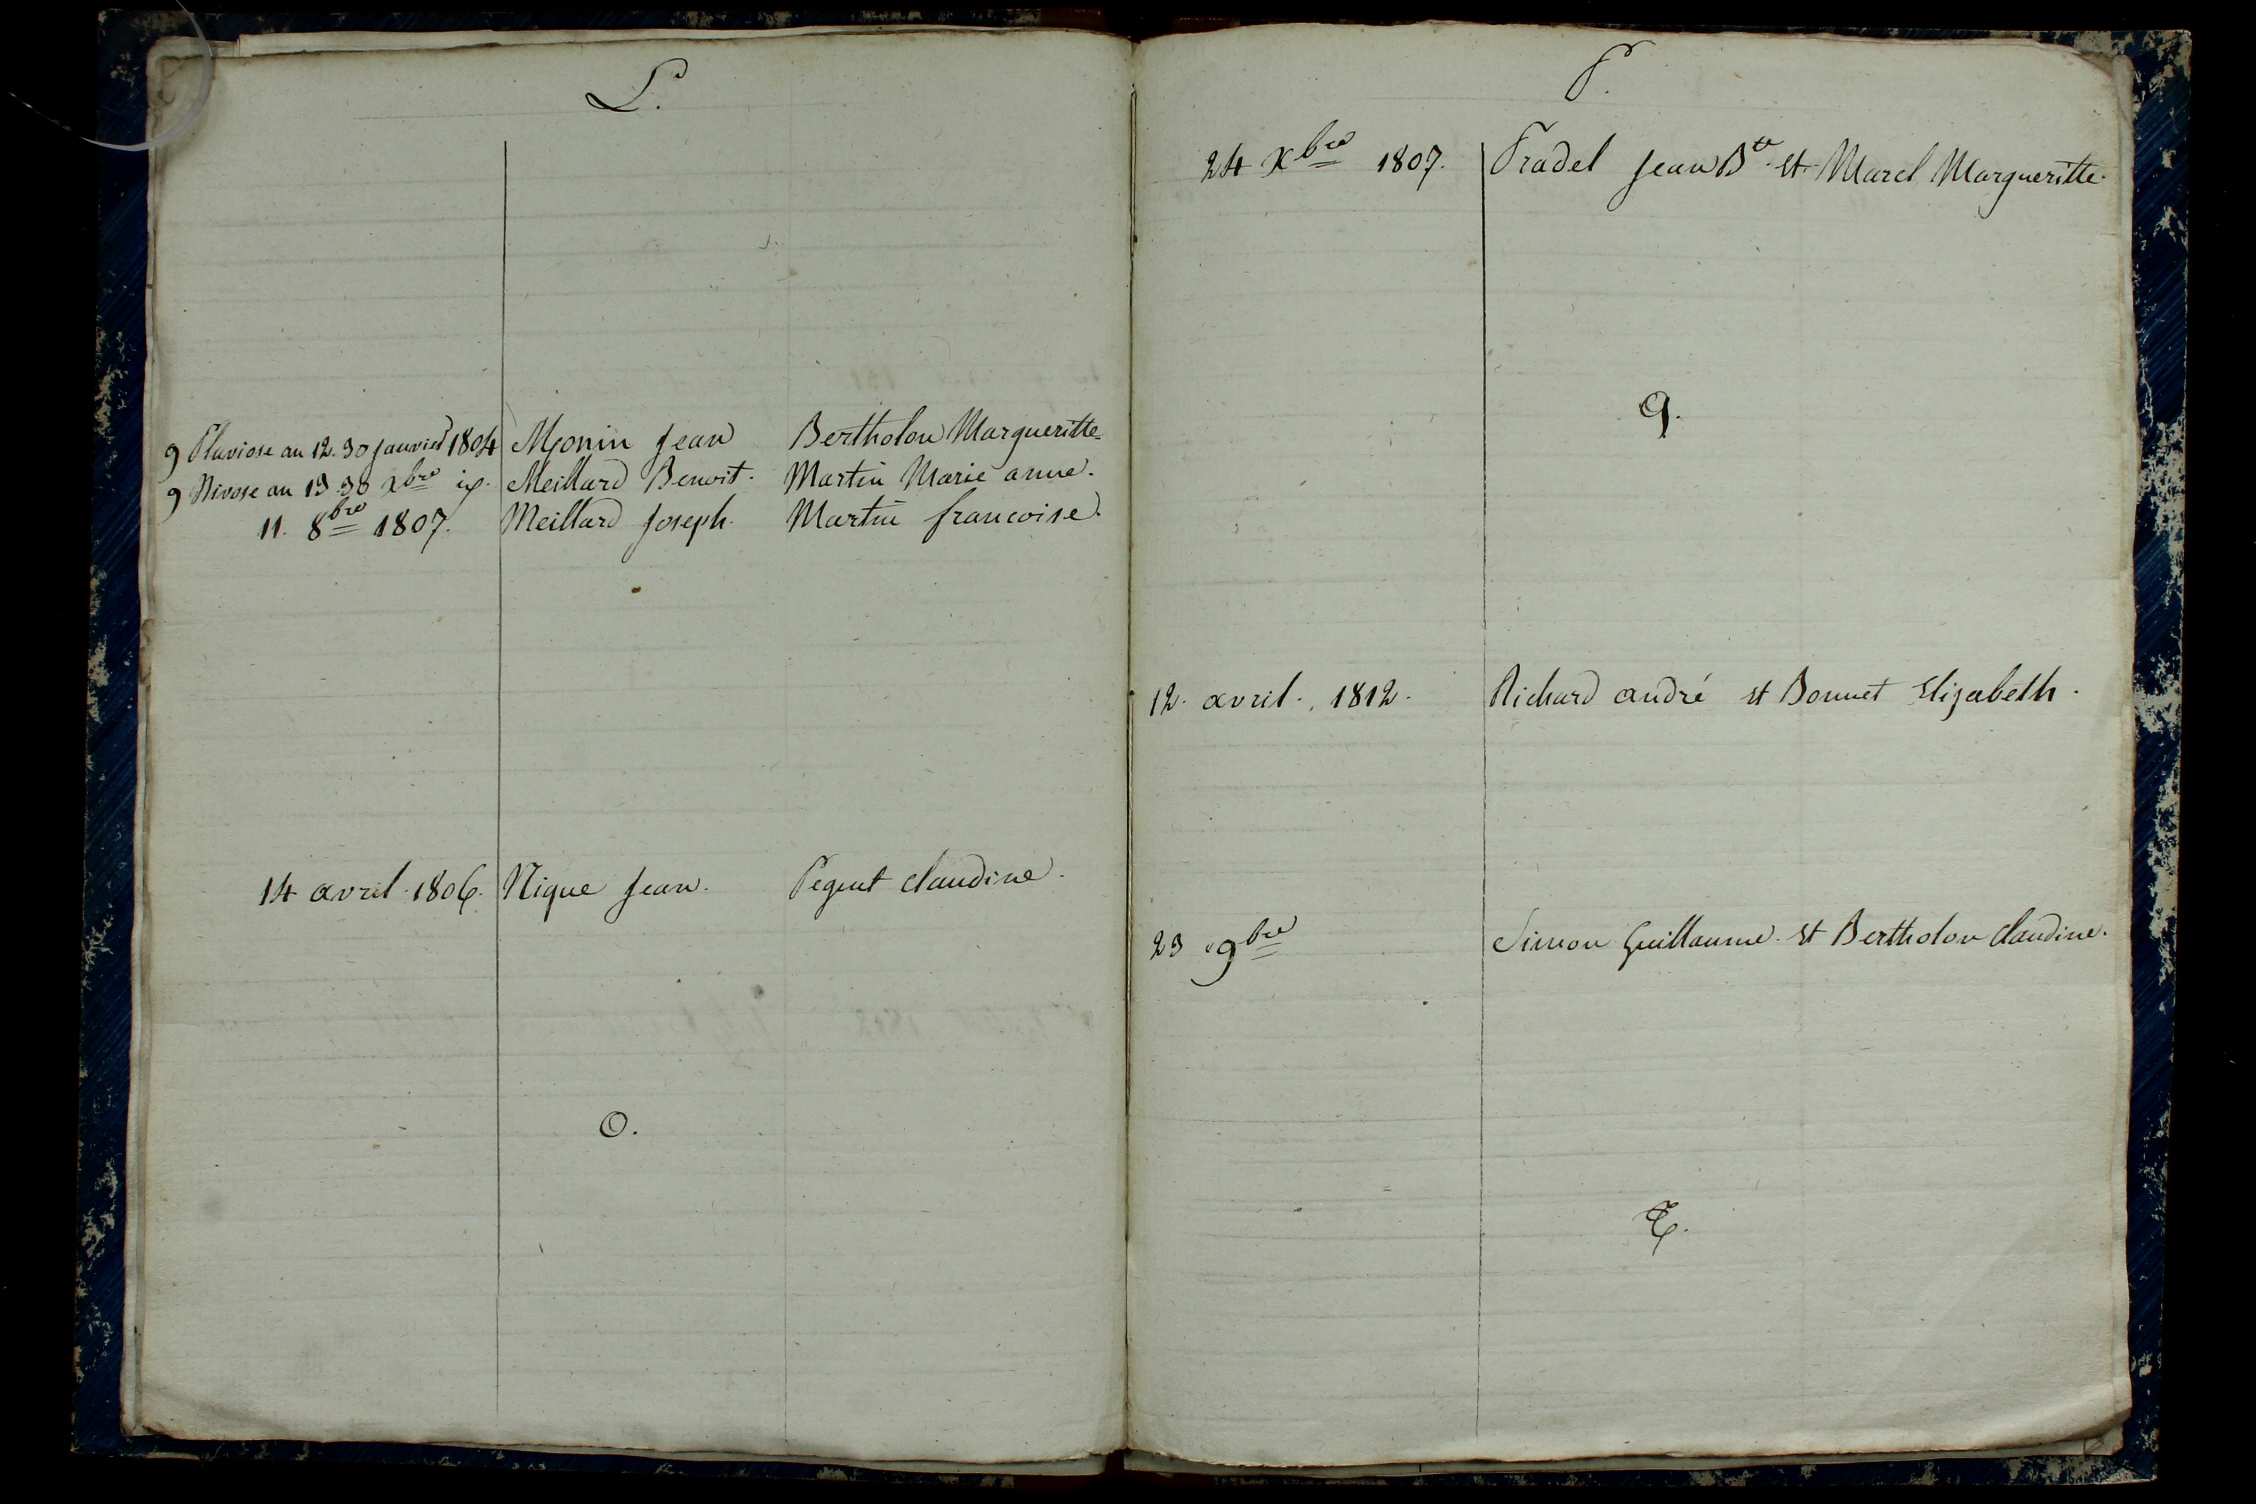 L.
9 Pluviose an 12. 30 janvier 1804 Monin Jean Bertholon Margueritte
9 Nivose an 13 30 Xbre id. Meillard Benoit. Martin Marie anne.
11. 8bre 1807. Meillard Joseph. Martin francoise.
14 avril 1806. Nique Jean. Pegeut claudine.
O.
P.
24 Xbre 1807. Pradel Jean Bte et Marel Margueritte.
Q.
12. avril. 1812. Richard andré et Bonnet Elizabeth.
23 9bre Simon Guillaume. et Bertholon Claudine.
T.